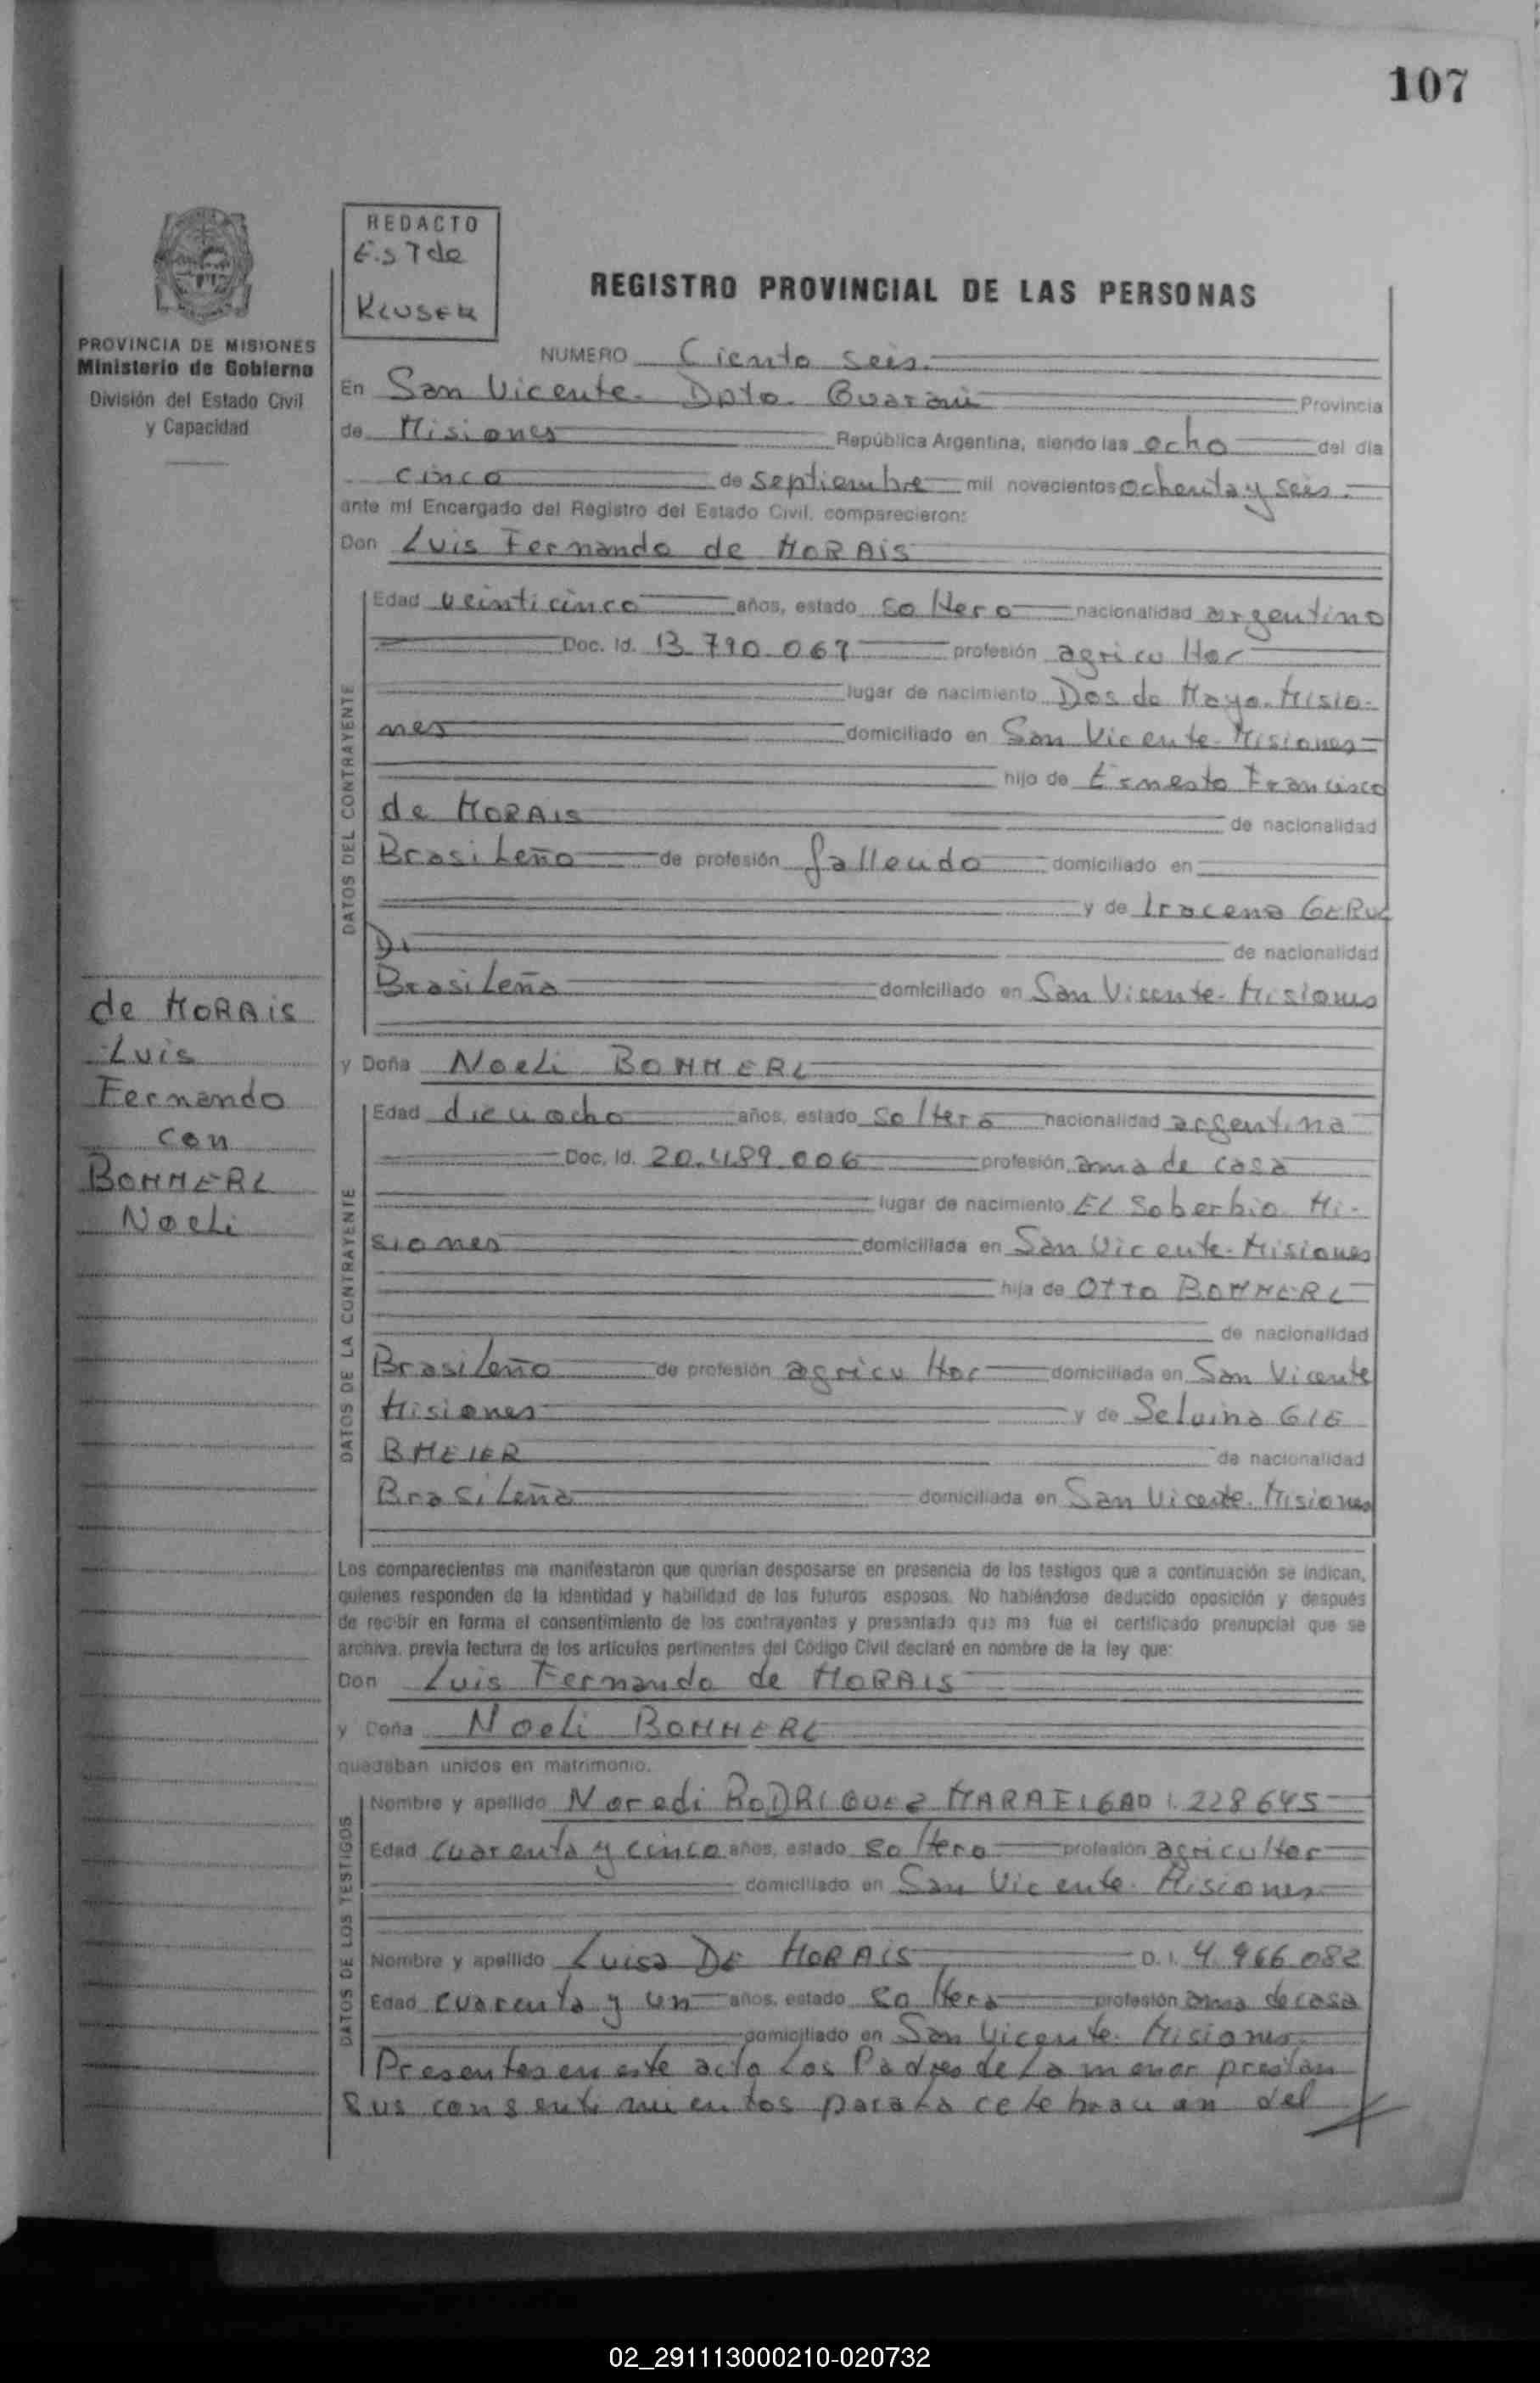 107
REDACTO
E.S T de
KLUSER
REGISTRO PROVINCIAL DE LAS PERSONAS
PROVINCIA DE MISIONES
Ministerio de Gobierno
División del Estado Civil
y Capacidad
NUMERO Ciento seis.
En San Vicente. Dpto. Guarani Provincia
de Misiones República Argentina, siendo las ocho del día
cinco de septiembre mil novecientos ochenta y seis.
ante mí Encargado del Registro del Estado Civil, comparecieron:
Don Luis Fernando de MORAIS
DATOS DEL CONTRAYENTE
Edad veinticinco años, estado soltero nacionalidad argentino
Doc. Id. 13.790.067 profesión agricultor
lugar de nacimiento Dos de Mayo. Misio-
nes domiciliado en San Vicente-Misiones
hijo de Ernesto Francisco
de MORAIS de nacionalidad
Brasileño de profesión fallecido domiciliado en
y de Iracena GERVA
DI de nacionalidad
Brasileña domiciliado en San Vicente-Misiones
de MORAIS
Luis
Fernando
con
BOMMERL
Noeli
y Doña Noeli BOMMERL
DATOS DE LA CONTRAYENTE
Edad dieciocho años, estado soltera nacionalidad argentina
Doc. Id. 20.489.006 profesión ama de casa
lugar de nacimiento El Soberbio Mi-
siones domiciliada en San Vicente-Misiones
hija de Otto BOMMERL
de nacionalidad
Brasileño de profesión agricultor domiciliada en San Vicente
Misiones y de Selvina GIE
BMEIER de nacionalidad
Brasileña domiciliada en San Vicente. Misiones
Los comparecientes me manifestaron que querían desposarse en presencia de los testigos que a continuación se indican,
quienes responden de la identidad y habilidad de los futuros esposos. No habiéndose deducido oposición y después
de recibir en forma el consentimiento de los contrayentes y presentado que me fue el certificado prenupcial que se
archiva, previa lectura de los artículos pertinentes del Código Civil declaré en nombre de la ley que:
Don Luis Fernando de MORAIS
y Doña Noeli BOMMERL
quedaban unidos en matrimonio.
DATOS DE LOS TESTIGOS
Nombre y apellido Noredi RODRIGUEZ MARAFIGA D.I. 228645
Edad cuarenta y cinco años, estado soltero profesión agricultor
domiciliado en San Vicente. Misiones
Nombre y apellido Luisa DE MORAIS D.I. 4.966.082
Edad cuarenta y un años, estado soltera profesión ama de casa
domiciliado en San Vicente. Misiones
Presentes en este acto los Padres de la menor prestan
sus consentimientos para la celebracion del
02_291113000210-020732